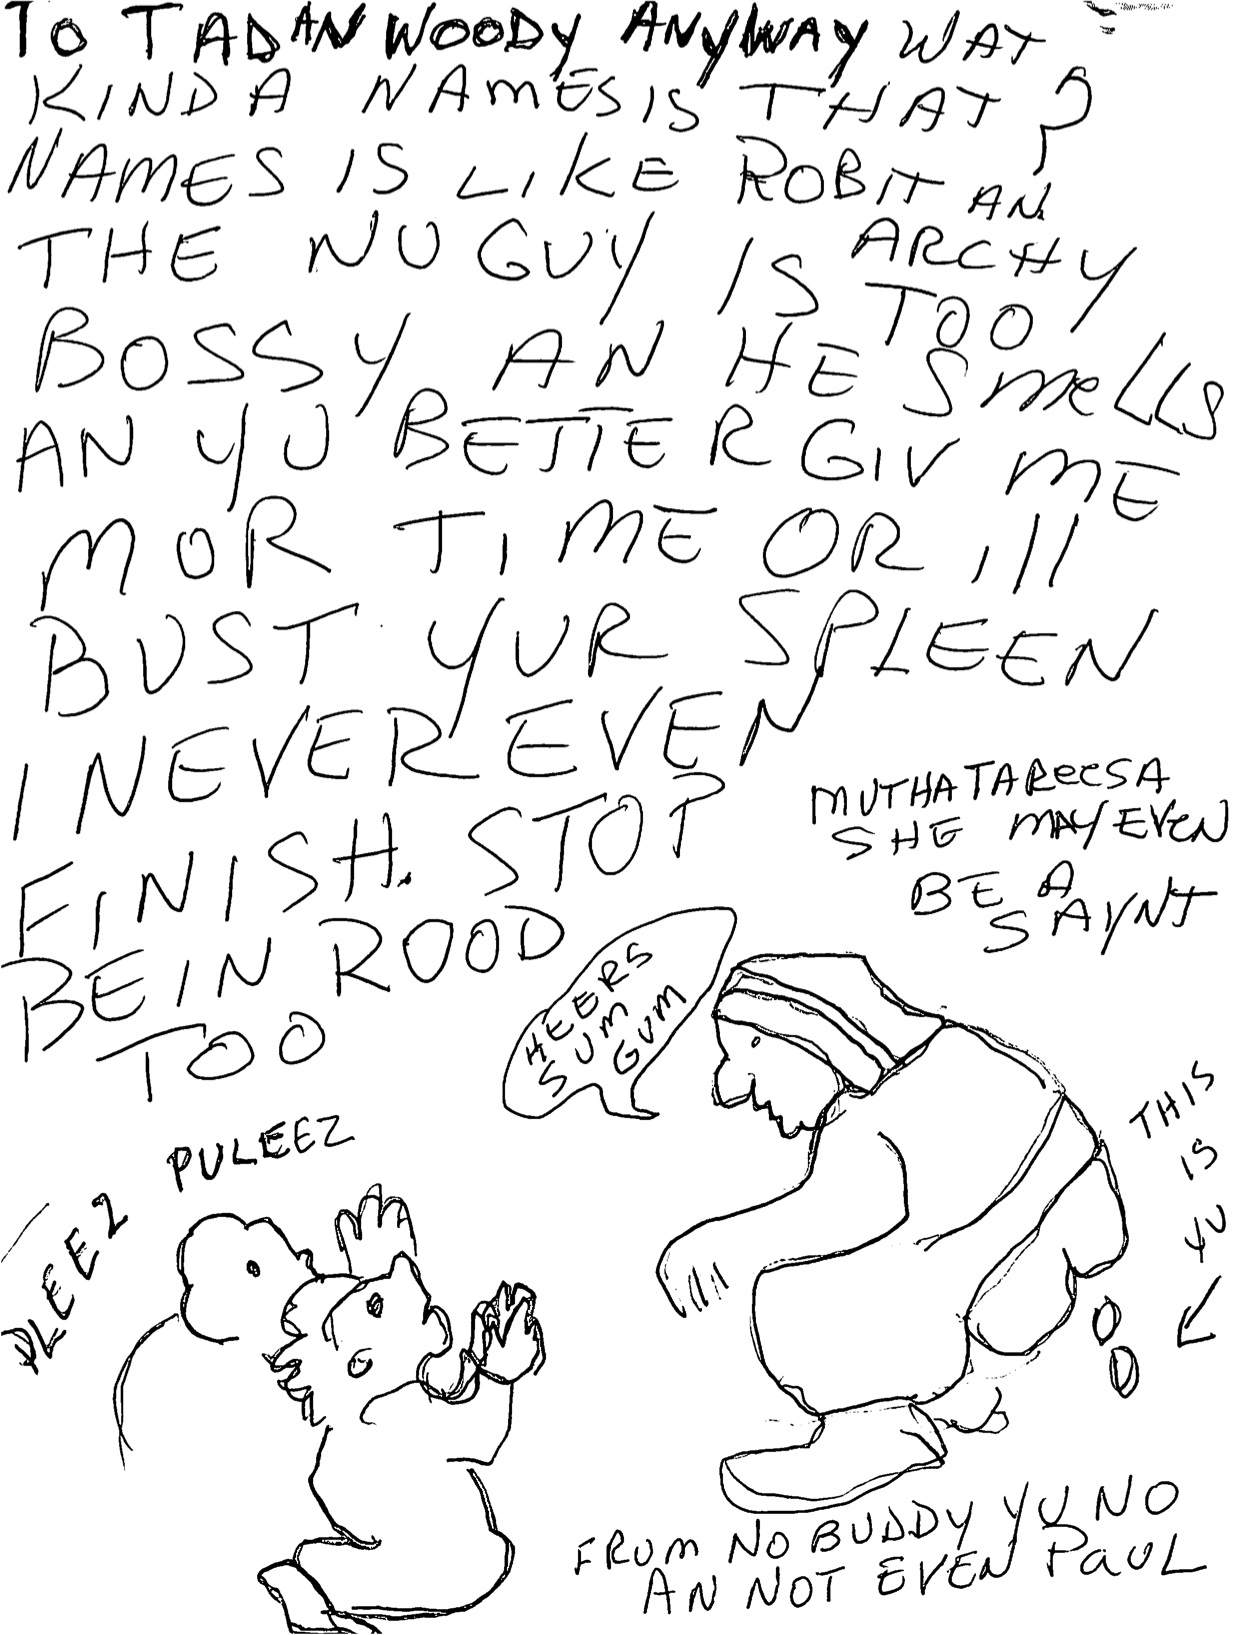 TO TAD AN WOODY ANYWAY WAT
KINDA NAMES IS THAT?
NAMES IS LIKE ROBIT AN
ARCHY
THE NU GUY IS TOO
BOSSY AN HE SmeLLS
AN YU BETTER GIV ME
MOR TIME OR ill
BUST YUR SPLEEN
I NEVER EVEN
FINISH. STOP
BEIN ROOD
TOO
MUTHA TAReeSA
SHE MAY EVeN
BE A
SAYNT
HEERS
SUM
GUM
PLEEZ PULEEZ
THIS
IS
YU
FRUM NO BUDDY YU NO
AN NOT EVEN PAUL